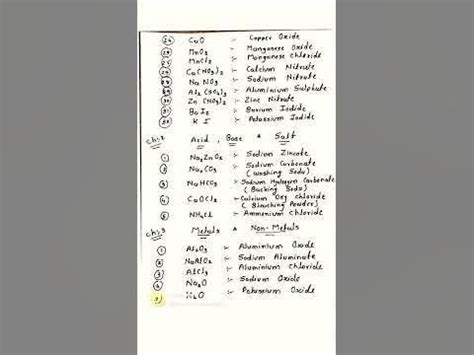 (24) CuO :- Copper Oxide
MnO2 :- Manganese Oxide
MnCl2 :- Manganese Chloride
Ca(NO3)2 :- Calcium Nitrate
NaNO3 :- Sodium Nitrate
Al2(SO4)3 :- Aluminium Sulphate
Zn(NO3)2 :- Zinc Nitrate
BaI2 :- Barium Iodide
KI :- Potassium Iodide
Ch:2 Acid, Base & Salt
(1) Na2ZnO2 :- Sodium Zincate
(2) Na2CO3 :- Sodium Carbonate
(Washing Soda)
(3) NaHCO3 :- Sodium Hydrogen Carbonate
(Backing Soda)
(4) CaOCl2 :- Calcium Oxy Chloride
(Bleaching Powder)
(5) NH4Cl :- Ammonium Chloride
Ch:3 Metals & Non-Metals
(1) Al2O3 :- Aluminium Oxide
(2) NaAlO2 :- Sodium Aluminate
(3) AlCl3 :- Aluminium Chloride
(4) Na2O :- Sodium Oxide
(5) K2O :- Potassium Oxide